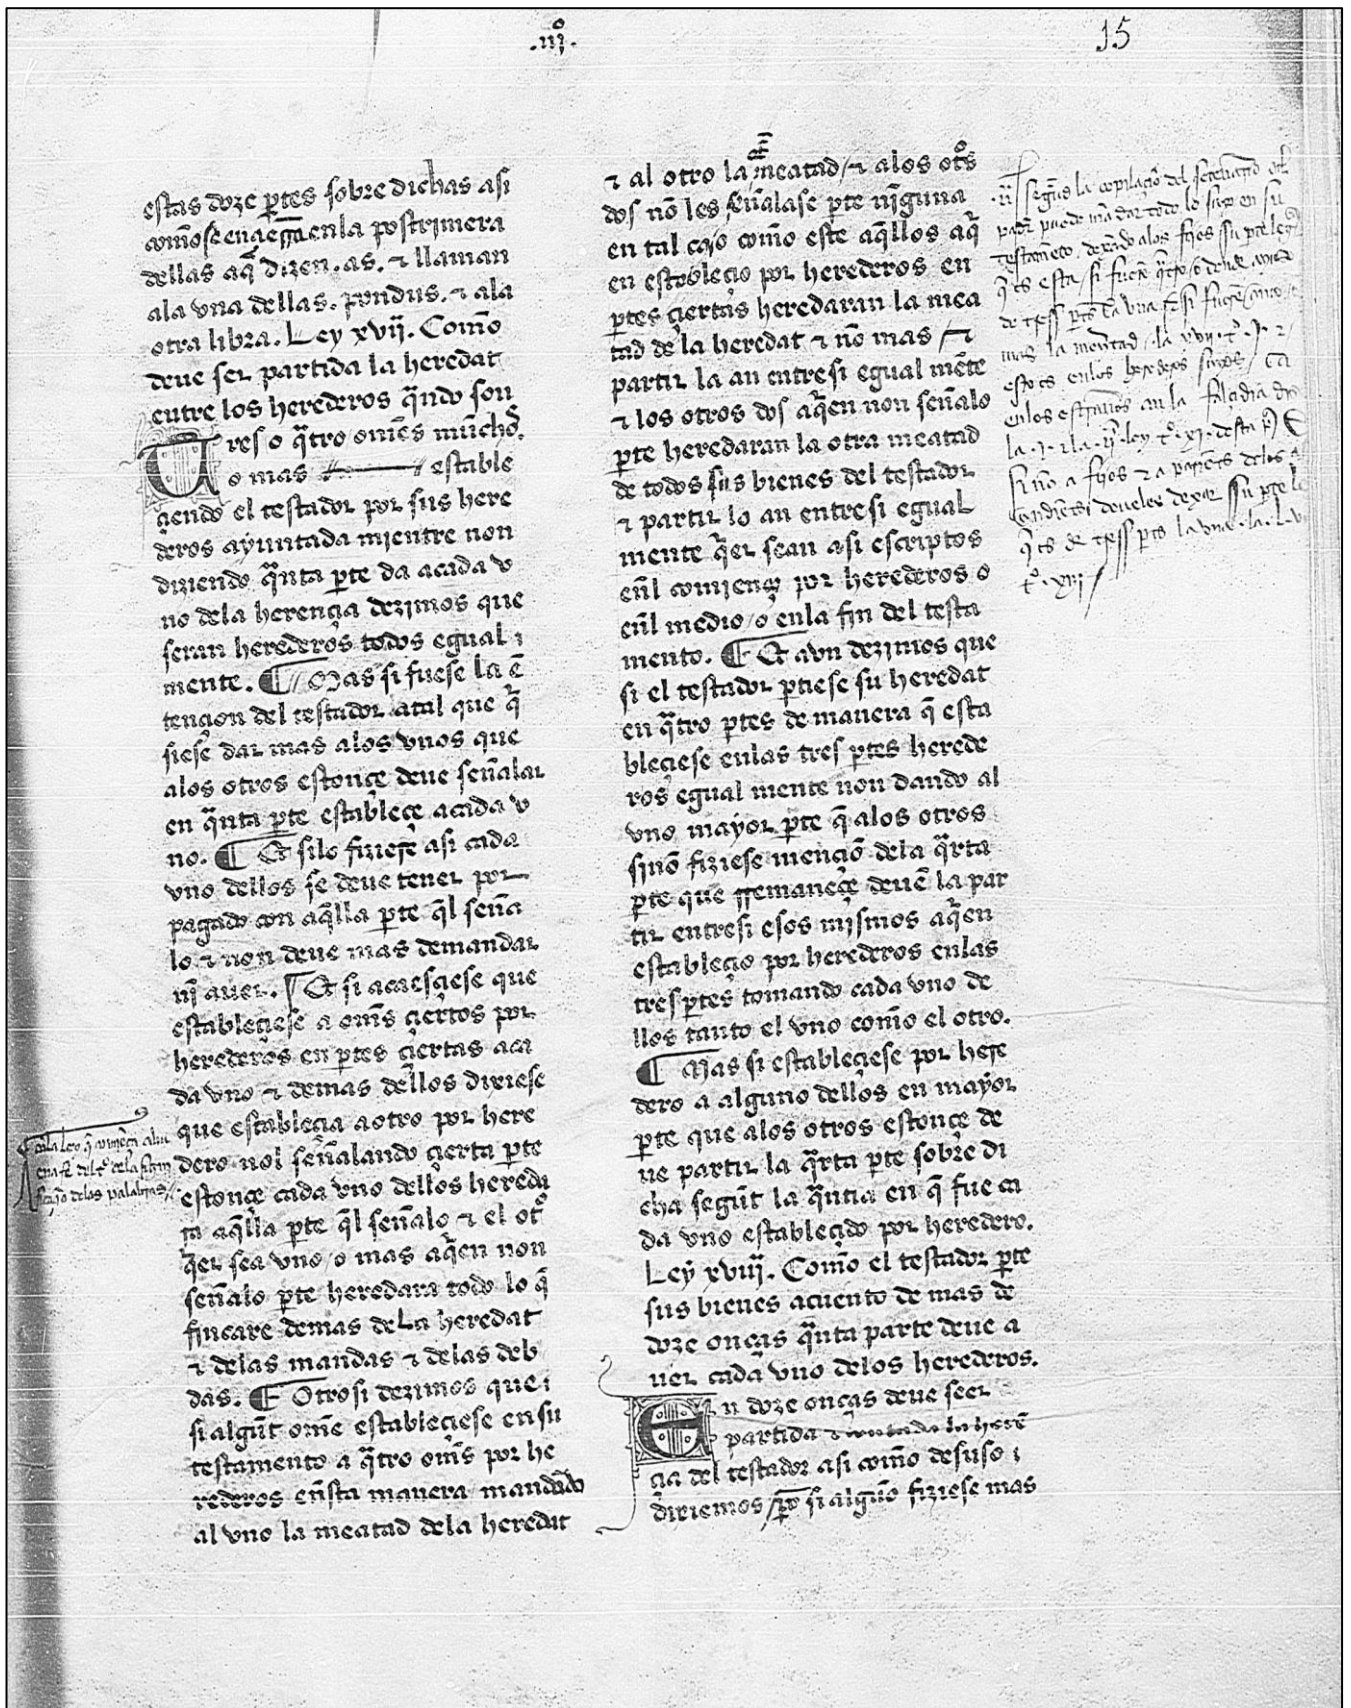 .iijº.
15
estas doze ꝑtes sobre dichas asi
com̃o se en la postrimera
dellas aq̃ dizen .as. ⁊ llaman
ala vna dellas. pondus. ⁊ ala
otra libra. Ley xvij. Com̃o
deue ser partida la heredat
entre los herederos q̃ndo son
Tres o q̃tro om̃es muchos.
o mas estable
çiendo el testador por sus here
deros ayuntada mjentre non
diziendo q̃nta ꝑte da acada v
no dela herençia dezimos que
seran herederos todos egual
mente. ¶ Mas si fuese la ẽ
tençion del testador atal que q̃
siese dar mas alos vnos que
alos otros estonçe deue señalar
en q̃nta ꝑte estableçe acada v
no. ¶ Et silo fiziese asi cada
vno dellos se deue tener por
pagado con aq̃lla ꝑte q̃l seña
lo ⁊ non deue mas demandar
nj̃ auer. ¶ Et si acaesçiese que
estableçiese a om̃s çiertos por
herederos en ꝑtes çiertas aca
da vno ⁊ demas dellos dixiese
que estableçia aotro por here
dero nol señalando çierta ꝑte
estonçe cada vno dellos hereda
ra aq̃lla ꝑte q̃l señalo ⁊ el otº
q̃er sea vno / o mas aq̃en non
señalo ꝑte heredara todo lo q̃
fincare demas deLa heredat
⁊ delas mandas ⁊ delas deb
das. ¶ Otrosi dezimos que
si algũt om̃e estableçiese en su
testamento a q̃tro om̃s por he
rederos en̄sta manera mandãdo
al vno la meatad dela heredat
⁊ al otro la meatad / ⁊ alos otºs
dos nõ les señalase ꝑte nj̃guna
en tal caso com̃o este aq̃llos aq̃
en estableçio por herederos en
ꝑtes çiertas heredaran la mea
tad de la heredat ⁊ nõ mas / ⁊
partir la an entresi egual mẽte
⁊ los otros dos aq̃en non señalo
ꝑte heredaran la otra meatad
de todos sus bienes del testador
⁊ partir lo an entresi egual
mente q̃er sean asi escriptos
en̄l comjenço por herederos o
en̄l medio / o enla fin del testa
mento. ¶ Et avn dezimos que
si el testador ꝑtiese su heredat
en q̃tro ꝑtes de manera q̃ esta
bleçiese enlas tres ꝑtes herede
ros egual mente non dando al
vno mayor ꝑte q̃ alos otros
sinõ fiziese mençiõ dela q̃rta
ꝑte que rremaneçe deuẽ la par
tir entresi esos mjsmos aq̃en
estableçio por herederos enlas
tres ꝑtes tomando cada vno de
llos tanto el vno com̃o el otro.
¶ Mas si estableçiese por here
dero a alguno dellos en mayor
ꝑte que alos otros estonçe de
ue partir la q̃rta ꝑte sobre di
cha segũt la q̃ntia en q̃ fue ca
da vno estableçido por heredero.
Ley xviij. Com̃o el testador ꝑte
sus bienes acuento de mas de
doze onças q̃nta parte deue a
uer cada vno delos herederos.
En doze onças deue seer
partida ⁊ contada la herẽ
çia del testador asi com̃o desuso
diximos / ꝑo si algũo fiziese mas
segũd la copilaçiõ del
padr̃ puede mãdar todo lo suyo en su
testamẽto dexãdo alos fijos su ꝑte
q̃ es esta / si fuerẽ q̃tro / o dende ayuso
de tress ꝑtes la vna
mas la meytad . la xvij. tº. j.
esto es enlos herederos
enlos estraños
si nõ a fijos ⁊ a
deueles dexar su ꝑte
q̃ es de tress ꝑtes la vna
tº. xiij
enla ley q̃ comieça
dela
delas palabras